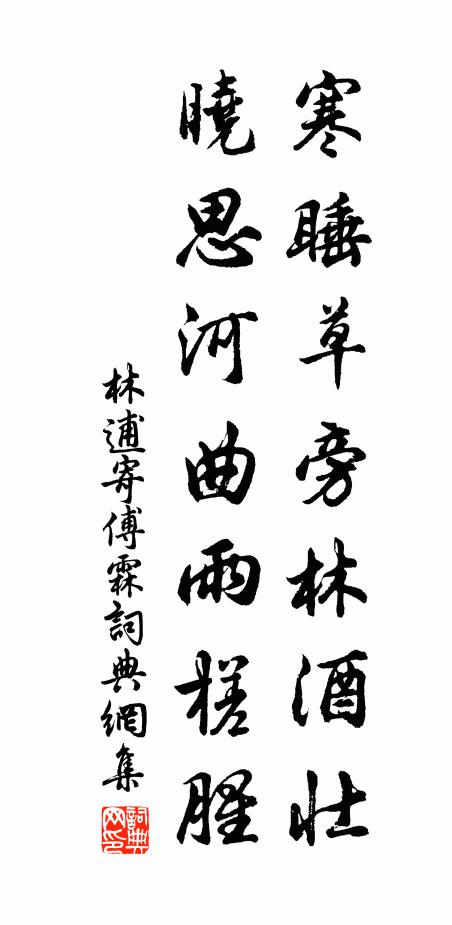 寒睡草旁林酒壮
曉思河曲雨槎腥
林逋寄傅霖詞典網集
詞典网印